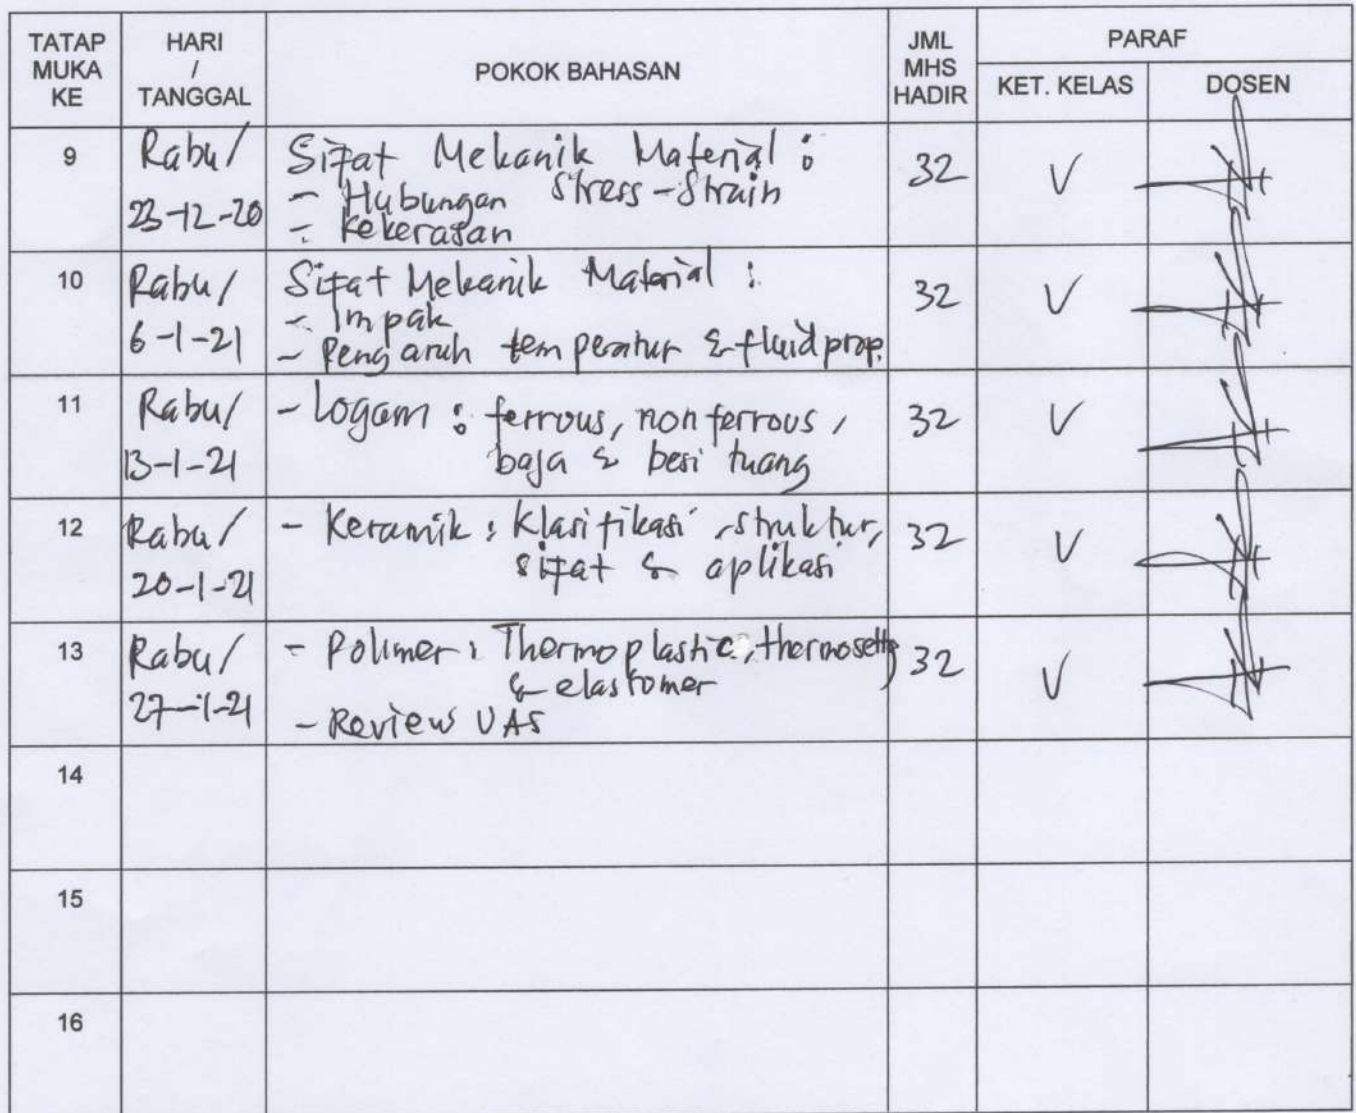 TATAP MUKA KE
HARI / TANGGAL
POKOK BAHASAN
JML MHS HADIR
PARAF
KET. KELAS
DOSEN
9
Rabu/
23-12-20
Sifat Mekanik Material :
- Hubungan Stress-Strain
- Kekerasan
32
V
10
Rabu/
6-1-21
Sifat Mekanik Material :
- Impak
- Pengaruh temperatur & fluid prop.
32
V
11
Rabu/
13-1-21
- Logam : ferrous, non ferrous,
baja & besi tuang
32
V
12
Rabu/
20-1-21
- Keramik : Klasifikasi, struktur,
sifat & aplikasi
32
V
13
Rabu/
27-1-21
- Polimer : Thermoplastic, thermosettg
& elastomer
- Review UAS
32
V
14
15
16